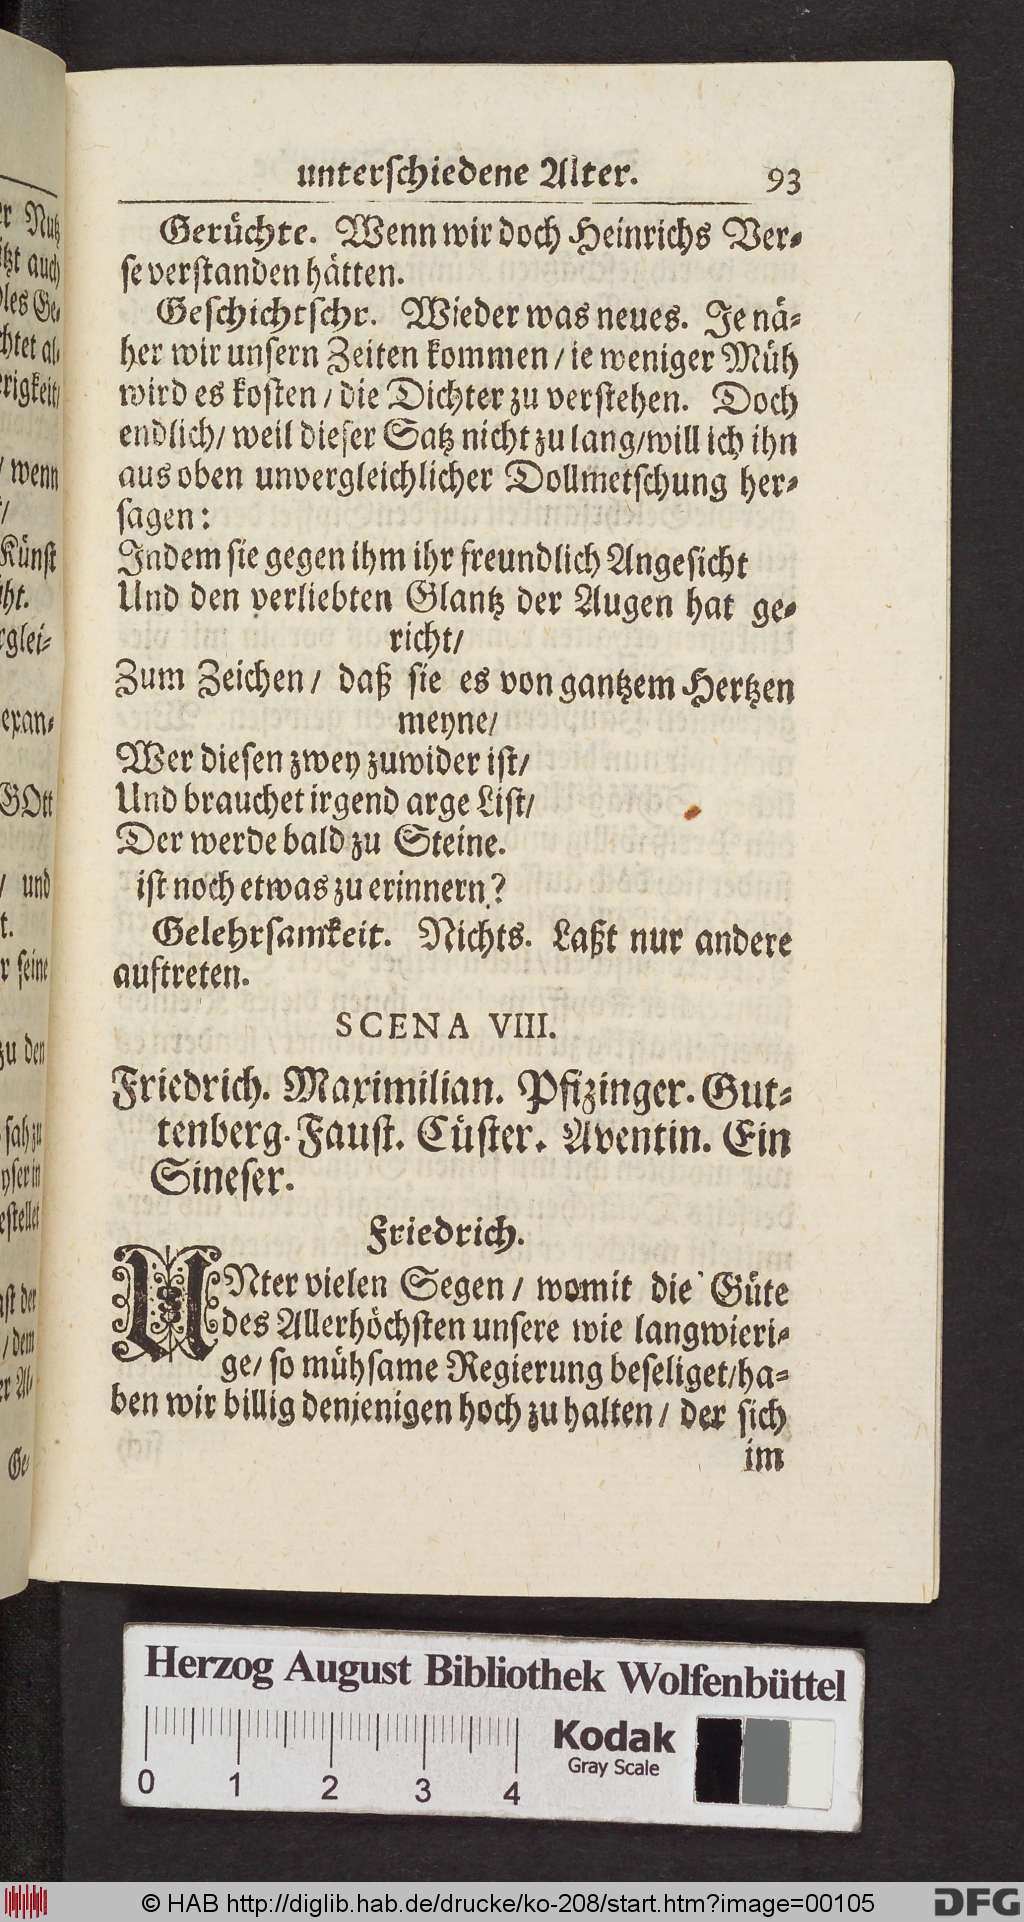 unterschiedene Alter. 93
Gerüchte. Wenn wir doch Heinrichs Ver-
se verstanden hätten.
Geschichtschr. Wieder was neues. Je nä-
her wir unsern Zeiten kommen / ie weniger Müh
wird es kosten / die Dichter zu verstehen. Doch
endlich / weil dieser Satz nicht zu lang / will ich ihn
aus oben unvergleichlicher Dollmetschung her-
sagen:
Indem sie gegen ihm ihr freundlich Angesicht
Und den verliebten Glantz der Augen hat ge-
richt /
Zum Zeichen / daß sie es von gantzem Hertzen
meyne /
Wer diesen zwey zuwider ist /
Und brauchet irgend arge List /
Der werde bald zu Steine.
ist noch etwas zu erinnern?
Gelehrsamkeit. Nichts. Laßt nur andere
auftreten.
SCENA VIII.
Friedrich. Maximilian. Pfizinger. Gut-
tenberg. Faust. Cüster. Aventin. Ein
Sineser.
Friedrich.
UNter vielen Segen / womit die Güte
des Allerhöchsten unsere wie langwieri-
ge / so mühsame Regierung beseliget / ha-
ben wir billig denjenigen hoch zu halten / der sich
im
er Nutz
tzt auch
les Ge-
chtet al-
erigkeit /
/ wenn
/
Künst
ht.
rglei-
exan-
GOtt
/ und
t.
r seine
zu den
sah zu
yser in
estellet
ast der
/ dem
er Al-
Ge-
Herzog August Bibliothek Wolfenbüttel
Kodak
Gray Scale
0 1 2 3 4
© HAB http://diglib.hab.de/drucke/ko-208/start.htm?image=00105
DFG